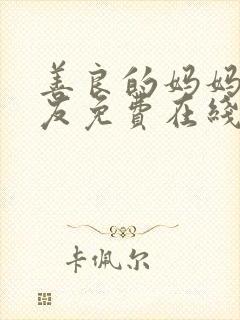 善良的妈妈
友免费在线
卡佩尔